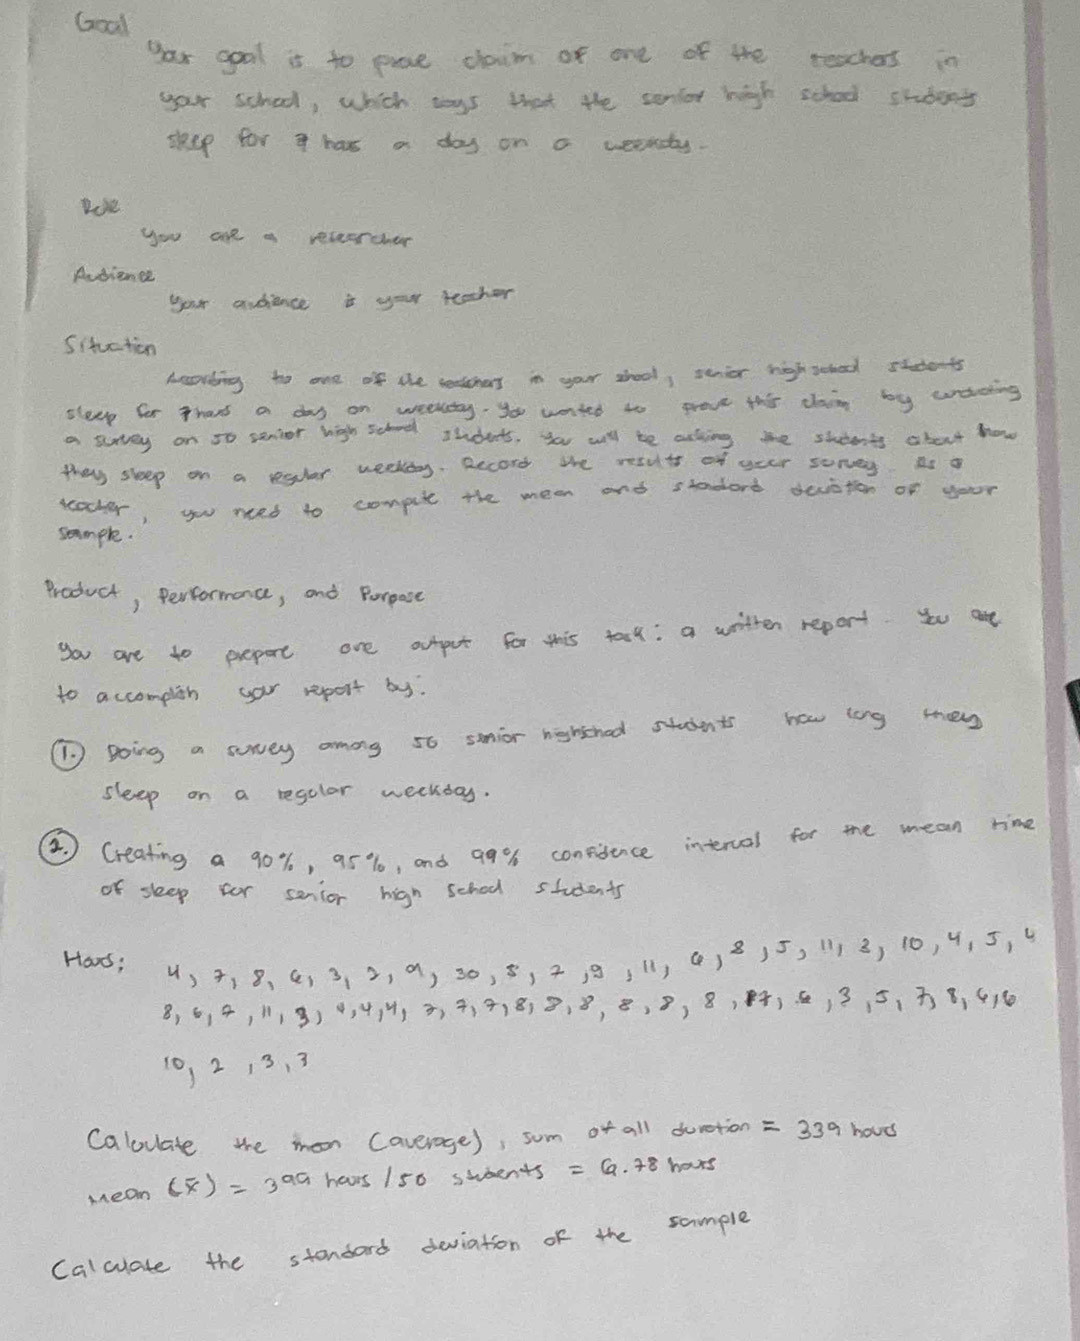 Goal
Your goal is to prove claim of one of the teachers in
your school, which says that the senior high school students
sleep for 7 hours a day on a weekday.
Role
You are a researcher
Audience
Your audience is your teacher
Situation
According to one of the teachers in your school, senior high school students
sleep for 7 hours a day on weekday. You wanted to prove this claim by conducting
a survey on 50 senior high school students. You will be asking the students about how
they sleep on a regular weekday. Record the results of your survey. As a
teacher, you need to compute the mean and standard deviation of your
sample.
Product, Performance, and Purpose
You are to prepare one output for this task: a written report. You are
to accomplish your report by:
1. Doing a survey among 50 senior highschool students how long they
sleep on a regular weekday.
2. Creating a 90%, 95%, and 99% confidence interval for the mean time
of sleep for senior high school students
Hours: 4, 7, 8, 6, 3, 3, 9, 30, 5, 7, 9, 11, 6, 8, 5, 11, 3, 10, 4, 5, 4
8, 6, 7, 11, 3, 4, 4, 4, 7, 7, 7, 8, 8, 8, 8, 8, 8, 7, 6, 3, 5, 7, 8, 6, 6
10, 2, 3, 3
Calculate the mean (average), sum of all duration = 339 hours
Mean (x̄) = 399 hours / 50 students = 6.78 hours
Calculate the standard deviation of the sample